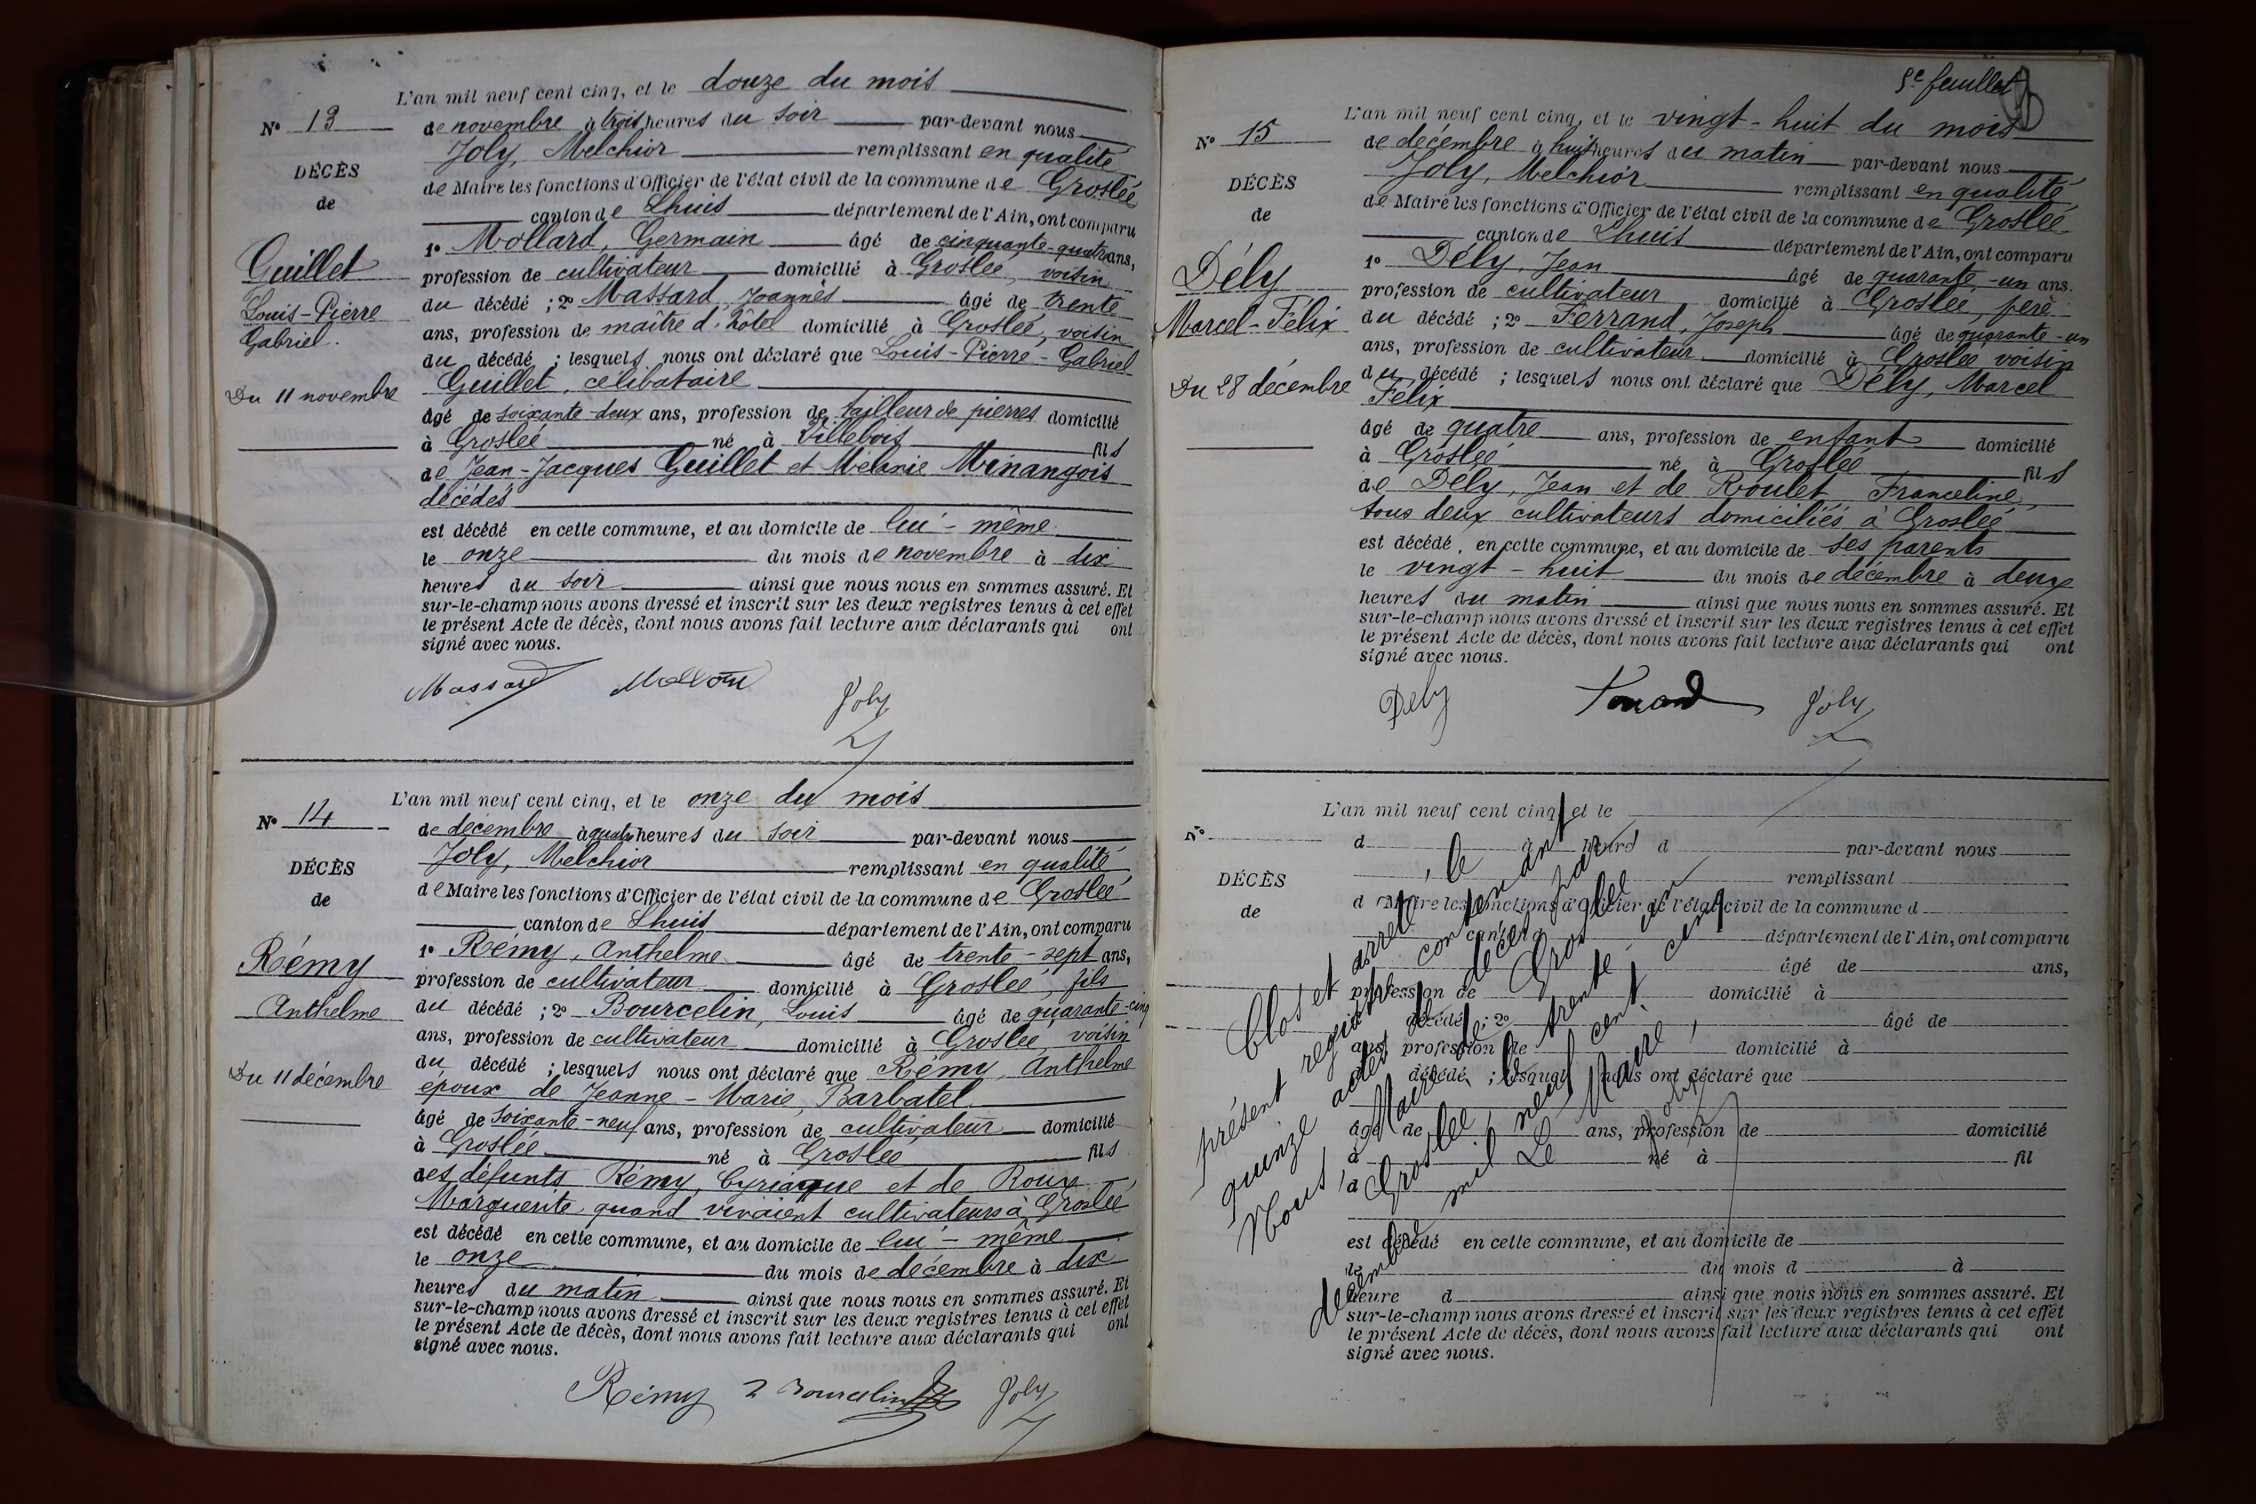 L'an mil neuf cent cinq, et le douze du mois
N° 13
de novembre à trois heures du soir par-devant nous
Joly, Melchior remplissant en qualité
DÉCÈS
de Maire les fonctions d'Officier de l'état civil de la commune de Groslée
de
canton de Lhuis département de l'Ain, ont comparu
1° Mollard, Germain âgé de cinquante-quatre ans,
Guillet
profession de cultivateur domicilié à Groslée, voisin
Louis-Pierre
du décédé ; 2° Massard, Joannès âgé de trente
Gabriel.
ans, profession de maître d'hôtel domicilié à Groslée, voisin
du décédé ; lesquels nous ont déclaré que Louis-Pierre-Gabriel
Du 11 novembre
Guillet, célibataire
âgé de soixante-deux ans, profession de tailleur de pierres domicilié
à Groslée né à Villebois fils
de Jean-Jacques Guillet et Mélanie Minangois
décédés
est décédé en cette commune, et au domicile de lui-même
le onze du mois de novembre à dix
heures du soir ainsi que nous nous en sommes assuré. Et
sur-le-champ nous avons dressé et inscrit sur les deux registres tenus à cet effet
le présent Acte de décès, dont nous avons fait lecture aux déclarants qui ont
signé avec nous.
Massard Mollard Joly
L'an mil neuf cent cinq, et le onze du mois
N° 14
de décembre à quatre heures du soir par-devant nous
Joly, Melchior remplissant en qualité
DÉCÈS
de Maire les fonctions d'Officier de l'état civil de la commune de Groslée
de
canton de Lhuis département de l'Ain, ont comparu
1° Rémy, Anthelme âgé de trente-sept ans,
Rémy
profession de cultivateur domicilié à Groslée, fils
Anthelme
du décédé ; 2° Bourcelin, Louis âgé de quarante-cinq
ans, profession de cultivateur domicilié à Groslée, voisin
du décédé ; lesquels nous ont déclaré que Rémy, Anthelme
Du 11 décembre
époux de Jeanne-Marie, Barbatel
âgé de soixante-neuf ans, profession de cultivateur domicilié
à Groslée né à Groslée fils
des défunts Rémy, Cyriaque et de Roux
Marguerite, quand vivaient cultivateurs à Groslée
est décédé en cette commune, et au domicile de lui-même
le onze du mois de décembre à dix
heures du matin ainsi que nous nous en sommes assuré. Et
sur-le-champ nous avons dressé et inscrit sur les deux registres tenus à cet effet
le présent Acte de décès, dont nous avons fait lecture aux déclarants qui ont
signé avec nous.
Rémy Bourcelin Joly
5e feuillet
L'an mil neuf cent cinq, et le vingt-huit du mois
N° 15
de décembre à huit heures du matin par-devant nous
Joly, Melchior remplissant en qualité
DÉCÈS
de Maire les fonctions d'Officier de l'état civil de la commune de Groslée
de
canton de Lhuis département de l'Ain, ont comparu
1° Dély, Jean âgé de quarante-un ans.
Dély
profession de cultivateur domicilié à Groslée, père
Marcel-Félix
du décédé ; 2° Ferrand, Joseph âgé de quarante-un
ans, profession de cultivateur domicilié à Groslée voisin
Du 28 décembre
du décédé ; lesquels nous ont déclaré que Dély, Marcel
Félix
âgé de quatre ans, profession de enfant domicilié
à Groslée né à Groslée fils
de Dély, Jean et de Roulet, Franceline,
tous deux cultivateurs domiciliés à Groslée
est décédé, en cette commune, et au domicile de ses parents
le vingt-huit du mois de décembre à deux
heures du matin ainsi que nous nous en sommes assuré. Et
sur-le-champ nous avons dressé et inscrit sur les deux registres tenus à cet effet
le présent Acte de décès, dont nous avons fait lecture aux déclarants qui ont
signé avec nous.
Dely Ferrand Joly
L'an mil neuf cent cinq, et le
N°
d à heure d par-devant nous
remplissant
DÉCÈS
d Maire les fonctions d'Officier de l'état civil de la commune d
de
canton d département de l'Ain, ont comparu
âgé de ans,
profession de domicilié à
décédé ; 2° âgé de
ans, profession de domicilié à
d décédé ; lesquels nous ont déclaré que
âgé de ans, profession de domicilié
à né à fil
d
est décédé en cette commune, et au domicile de
le du mois d à
heure d ainsi que nous nous en sommes assuré. Et
sur-le-champ nous avons dressé et inscrit sur les deux registres tenus à cet effet
le présent Acte de décès, dont nous avons fait lecture aux déclarants qui ont
signé avec nous.
Clos et arrêté, le
présent registre contenant
quinze actes de décès par
Nous, Maire de Groslée
à Groslée, le trente, un
décembre mil neuf cent cinq
Le Maire,
Joly